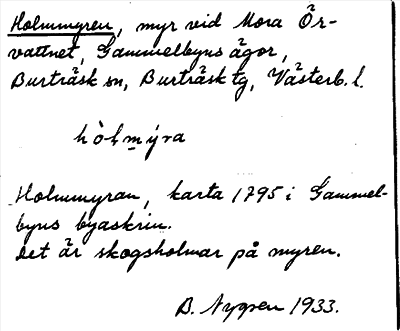 Holmmyren, myr vid Mora Ör-
vattnet, Gammelbyns ägor,
Burträsk sn, Burträsk tg, Västerb. l.
hòlm̠ýra
Holmmyran, karta 1795 i Gammel-
byns byaskrin.
Det är skogsholmar på myren.
B. Nygren 1933.